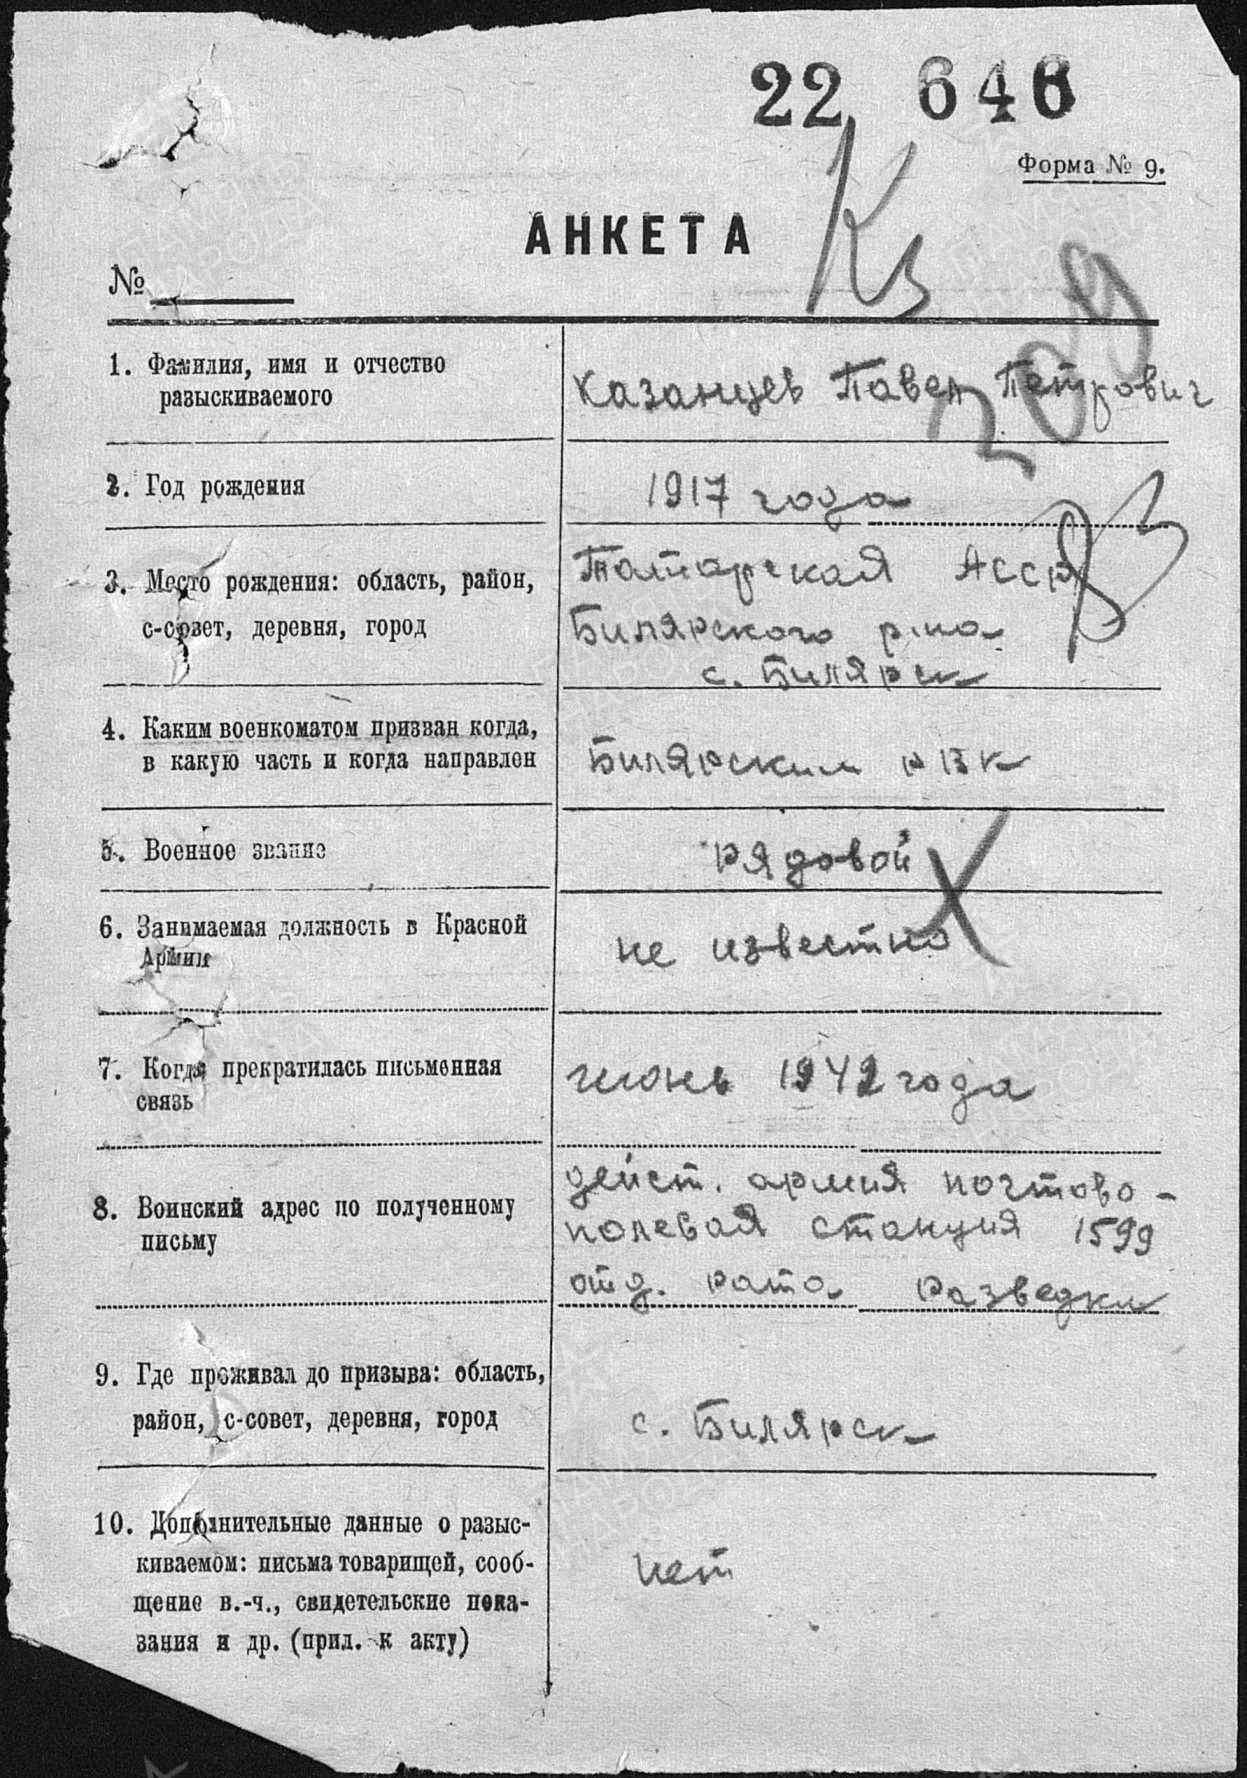 22 646
Форма № 9.
Кз
АНКЕТА
№
1. Фамилия, имя и отчество
разыскиваемого
Казанцев Павел Петрович
2. Год рождения
1917 года
3. Место рождения: область, район,
с-совет, деревня, город
Татарская АССР
Билярского р-на
с. Билярск
4. Каким военкоматом призван когда,
в какую часть и когда направлен
Билярским РВК
5. Военное звание
рядовой
6. Занимаемая должность в Красной
Армии
не известно
7. Когда прекратилась письменная
связь
июнь 1942 года
8. Воинский адрес по полученному
письму
дейст. армия почтово-
полевая станция 1599
отд. рота разведки
9. Где проживал до призыва: область,
район, с-совет, деревня, город
с. Билярск
10. Дополнительные данные о разыс-
киваемом: письма товарищей, сооб-
щение в.-ч., свидетельские пока-
зания и др. (прил. к акту)
нет